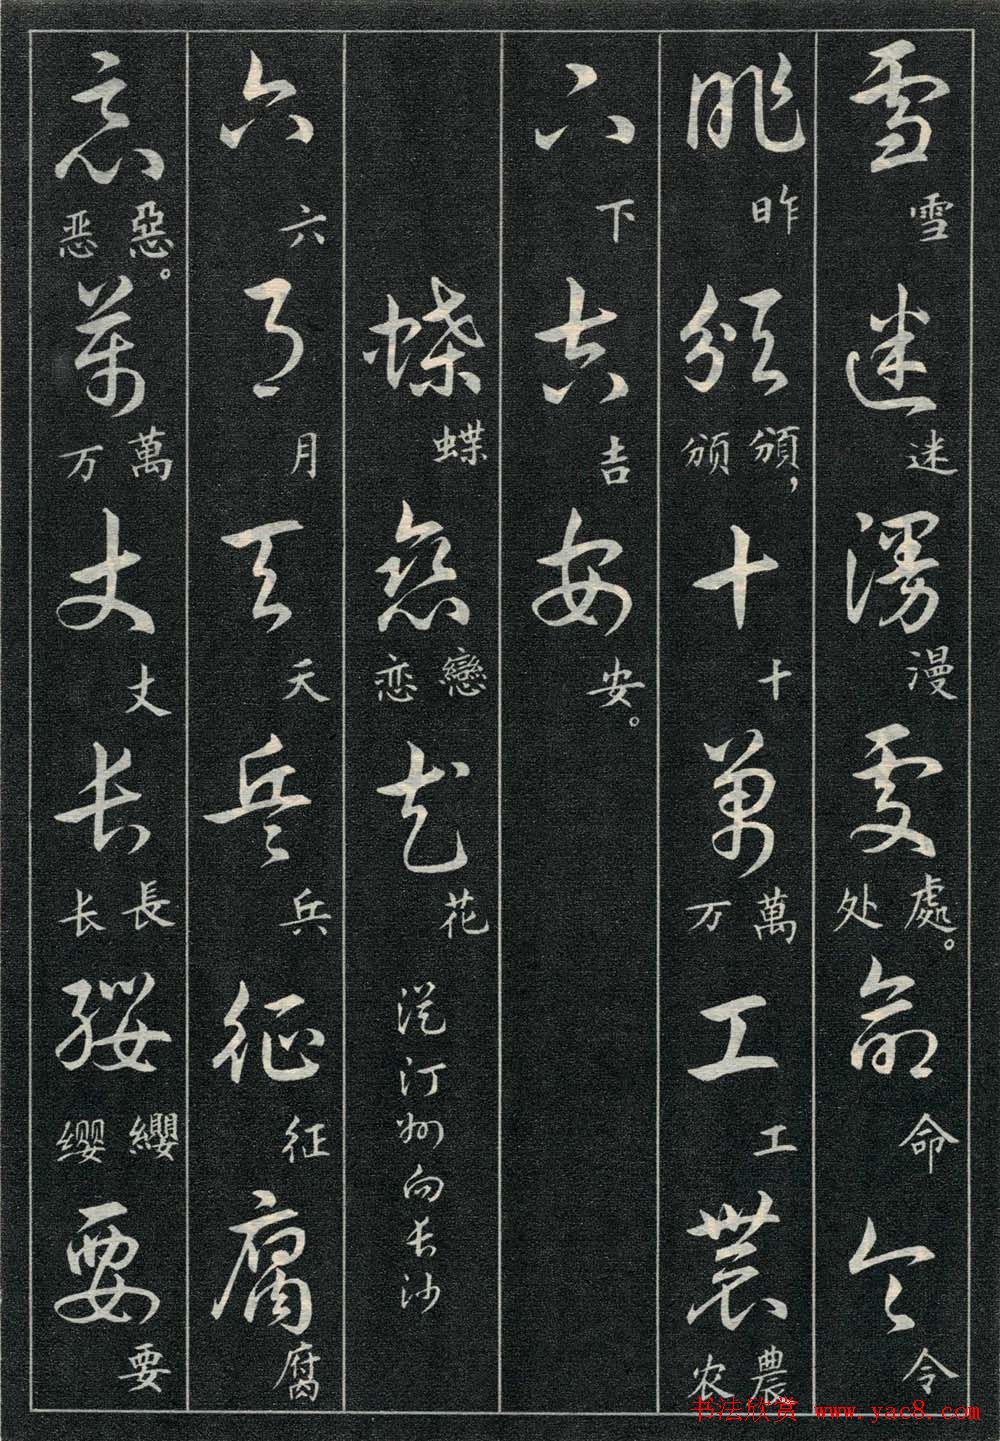 雪 雪 迷 迷 漫 漫 處 處。处 命 命 令 令
昨 昨 頒 頒，颁 十 十 萬 萬 万 工 工 農 農 农
下 下 吉 吉 安 安。
蝶 蝶 戀 戀 恋 花 花 從汀州向長沙
六 六 月 月 天 天 兵 兵 征 征 腐 腐
惡 惡。恶 萬 萬 万 丈 丈 長 長 长 纓 纓 缨 要 要
书法欣赏 www.yac8.com